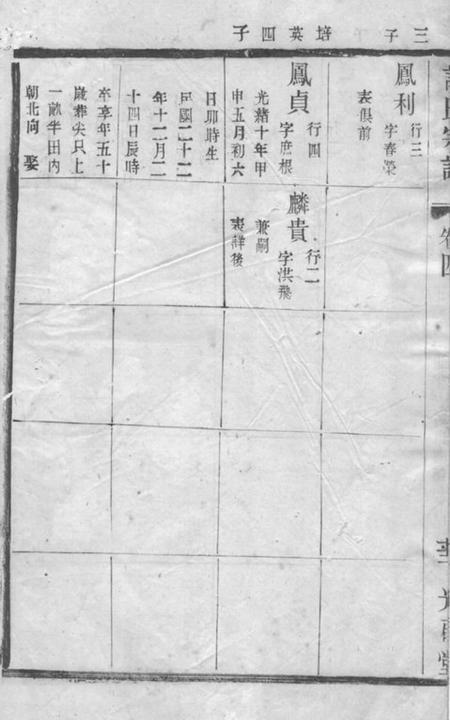 三子
培英四子
鳳利
行三
字春榮
表俱前
鳳貞
行四
字庶根
光緒十年甲
申五月初六
日卯時生
民國二十二
年十二月二
十四日辰時
卒享年五十
歲葬尖只上
一畝半田內
朝北向 娶
麟貴
行二
字洪飛
兼嗣
表詳後
卷四